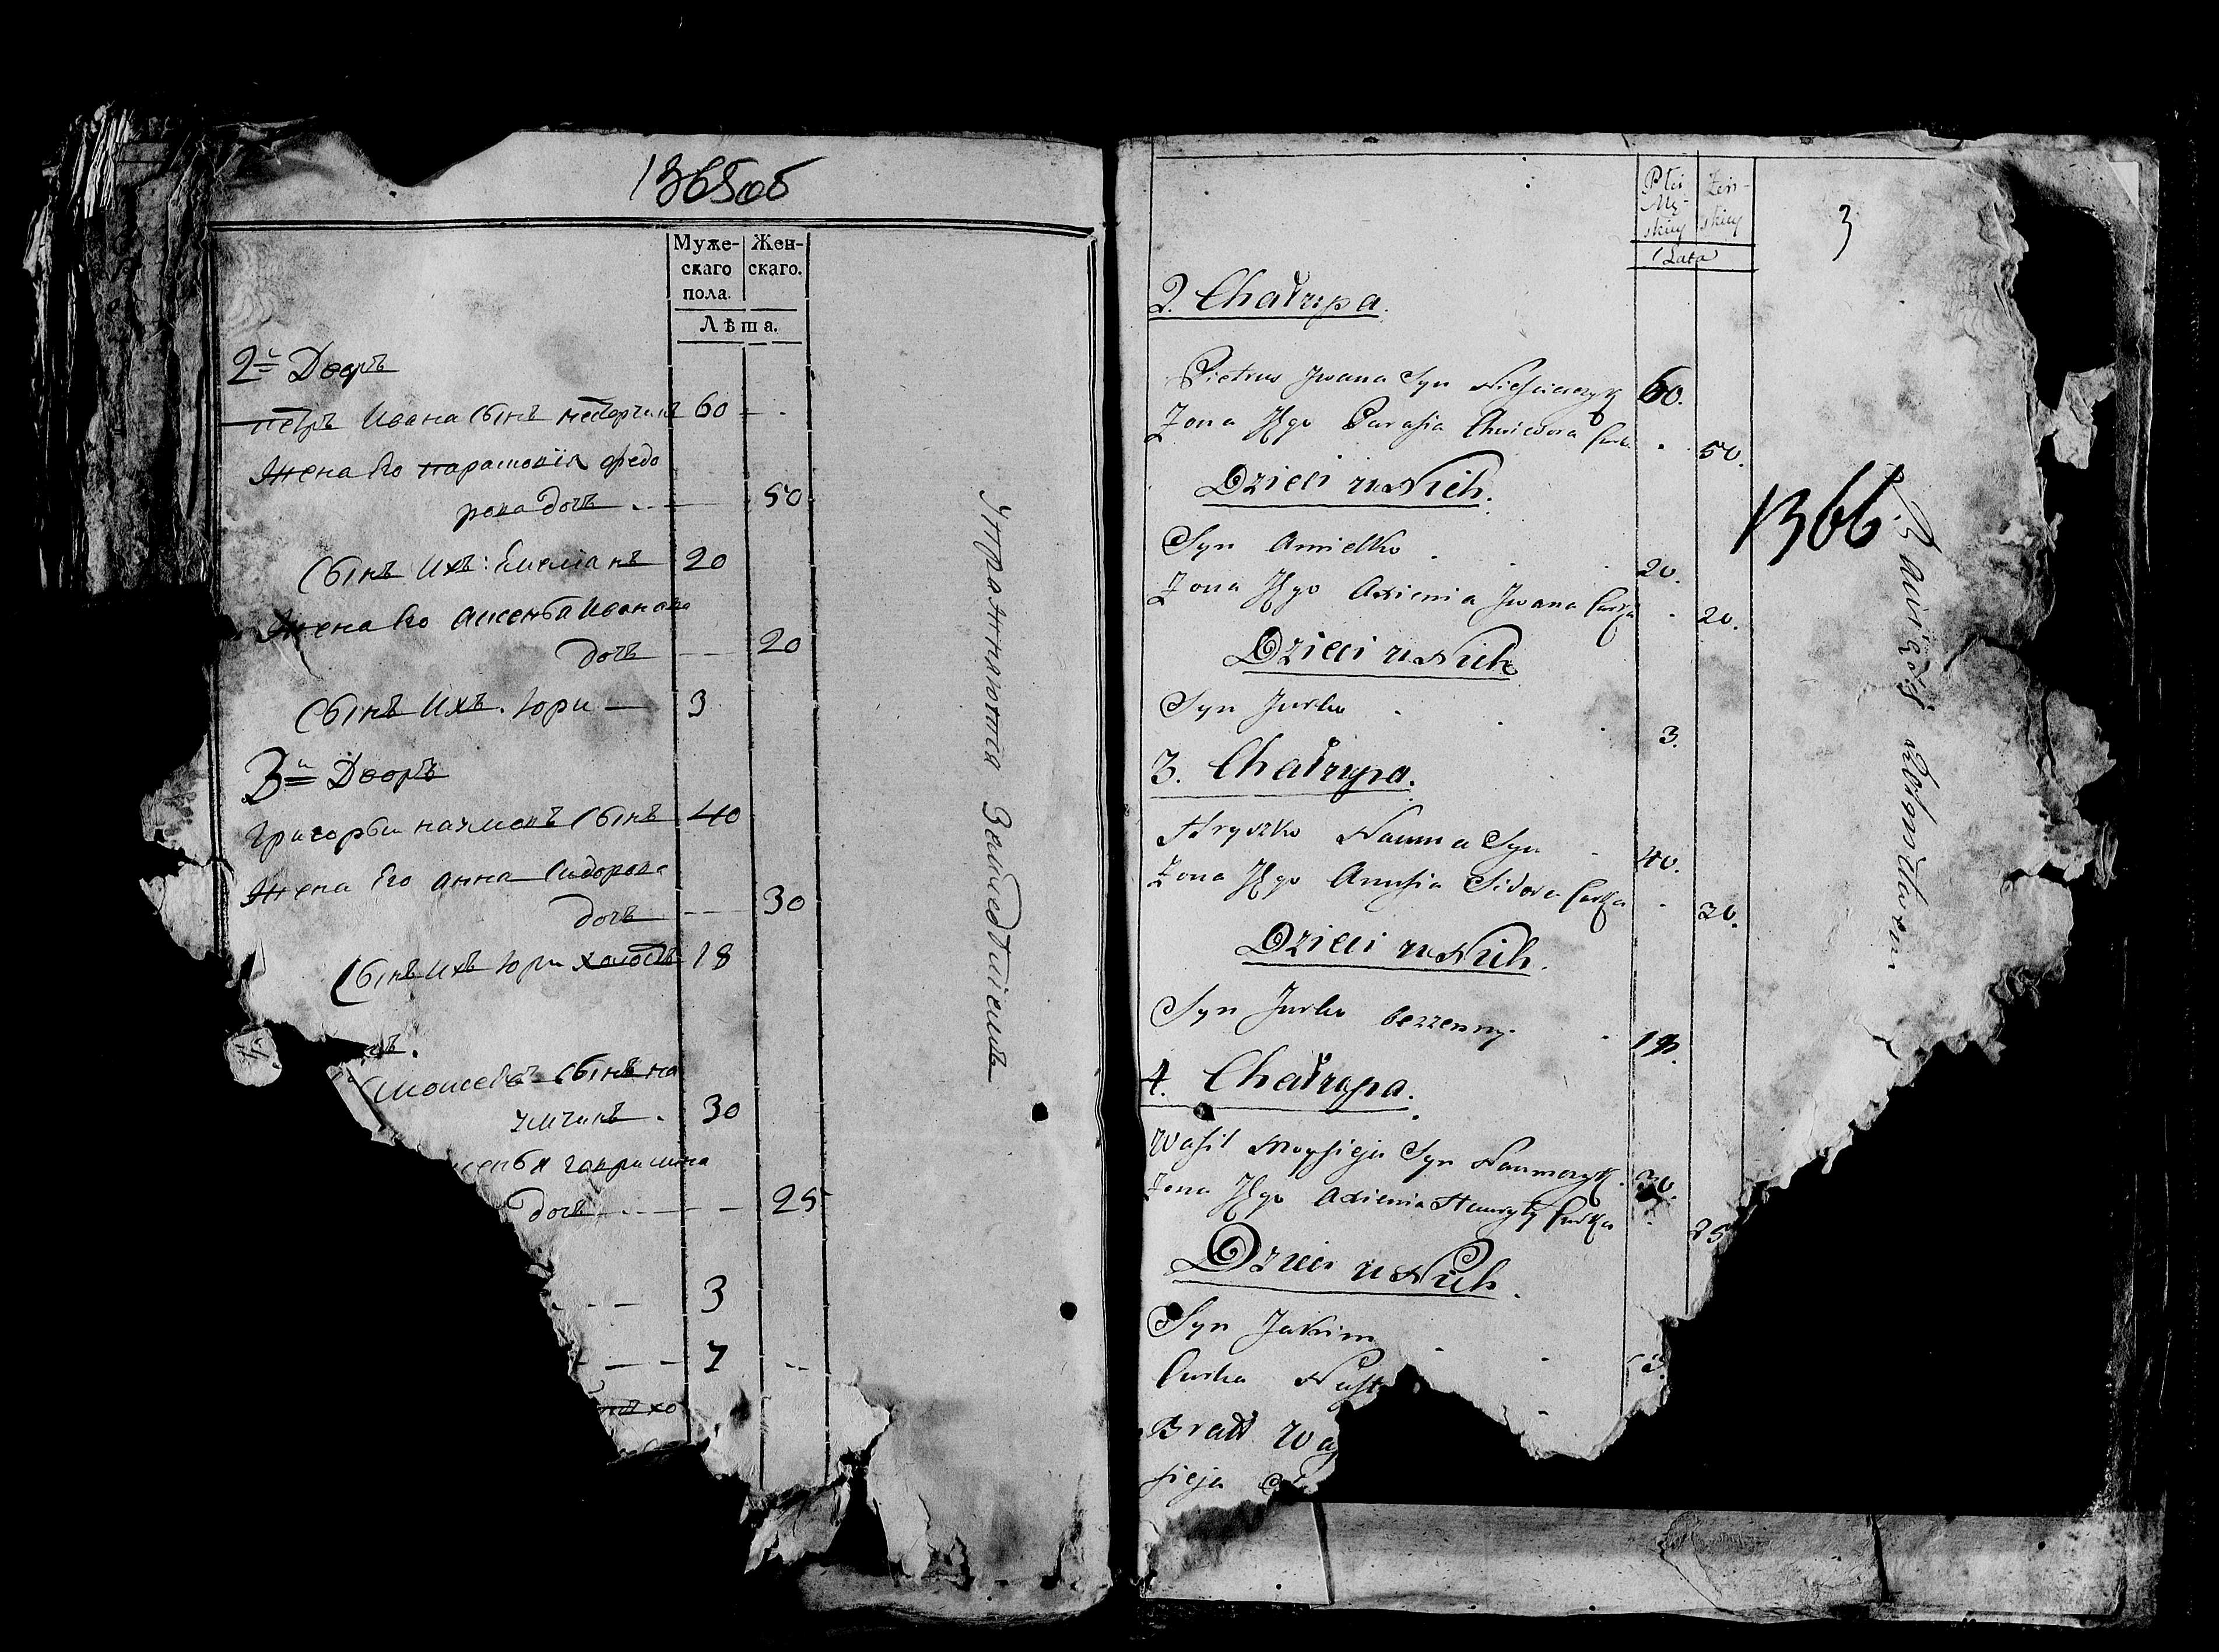 1365об
Муже-
скаго
пола.
Жен-
скаго.
Лѣта.
2й Дворъ
петръ Ивана Сынъ 60
Жена Его парасковія федо
рова дочь 50
Сынъ Ихъ: Емеліанъ 20
Жена Его Аксенья Иванова
дочь 20
Сынъ Ихъ. Юри 3
3й Дворъ
Григорьи наумовъ Сынъ 40
Жена Его Анна Сидорова
дочь 30
Сынъ Ихъ Юри холостъ 18
ъ.
Моисеевъ Сынъ на
умчикъ. 30
сенья гаврилина
дочь 25
3
7
хо
Упражняются Земледѣліемъ
Płci
Mę-
skiey
Żeń-
skiey
Lata
3
2. Chałupa.
Pietrus Jwana Syn 60.
Żona Jego Parasia Chwiedora Curka 50.
Dzieci u Nich.
Syn Amielko 20.
Żona Jego Axienia Jwana Curka 20.
Dzieci u Nich
Syn Jurko 3.
3. Chałupa.
Hryszko Nauma Syn 40.
Żona Jego Anusia Sidora Curka 30.
Dzieci u Nich.
Syn Jurko bezzenny 18.
4. Chałupa.
Wasil Moysieja Syn Naumczyk. 30.
Żona Jego Axienia Hawryły Curka 25
Dzieci u Nich.
Syn Jakim 3.
Curka Nast
Bratt Wa
sieja
1366.
Bawią się